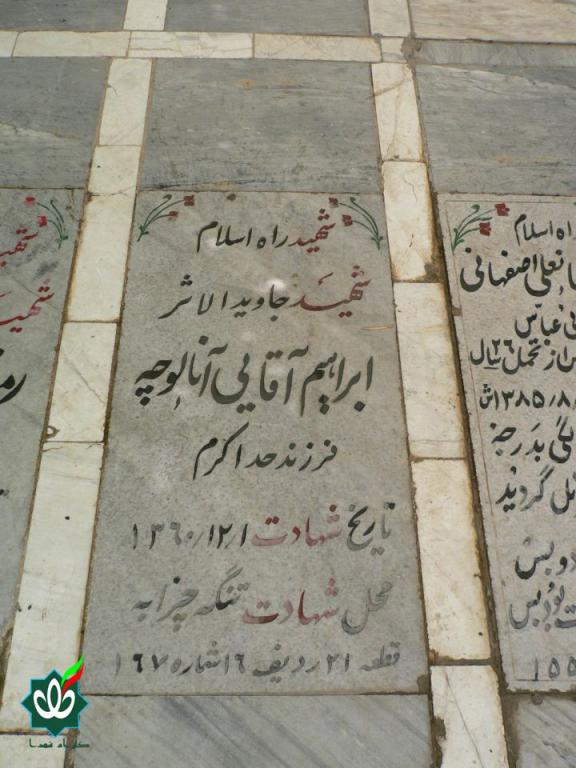 شهید راه اسلام
شهید جاوید الاثر
ابراهیم آقایی آناپوچه
فرزند خداکرم
تاریخ شهادت ۱۳۶۰/۱۲/۱
محل شهادت تنگه چزابه
قطعه ۲۱ ردیف ۱۶ شماره ۱۶۷
راه اسلام
اصفهانی
عباس
از تحمل ۲۶ سال
۱۳۸۵/۸/
بدرجه
گردید
شهید